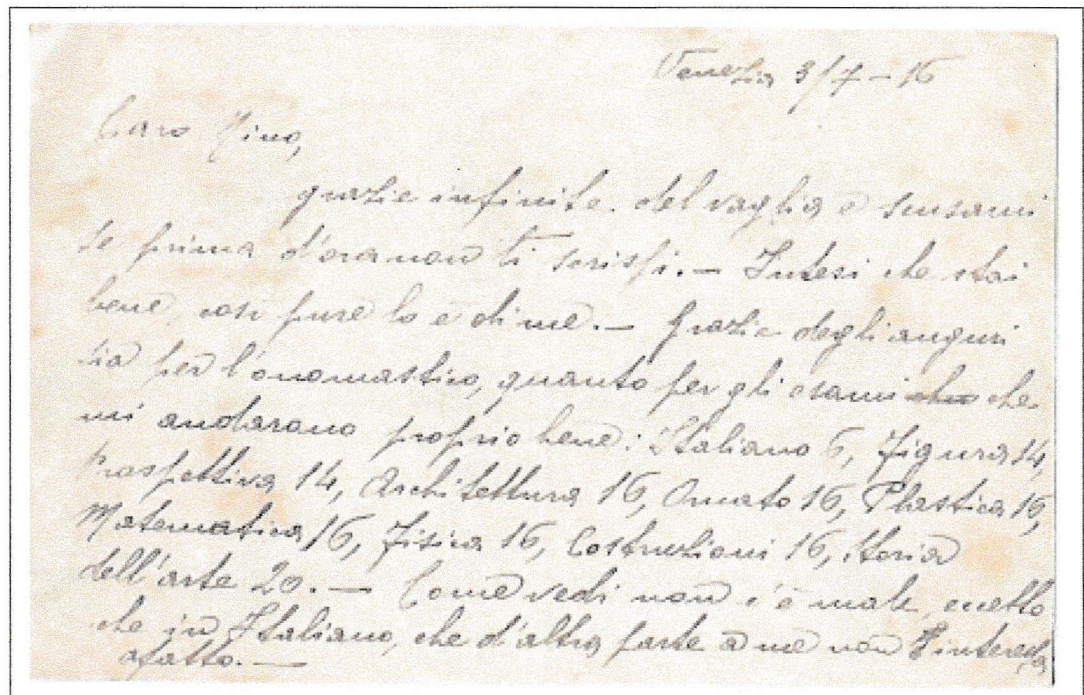 Venezia 3/7-16
Caro Nino,
grazie infinite del vaglia e scusami
se prima d'ora non ti scrissi. — Intesi che stai
bene, così pure lo è di me. — Grazie degli auguri
sia per l'onomastico, quanto per gli esami che che
mi andarono proprio bene: Italiano 6, Figura 14,
Prospettiva 14, Architettura 16, Ornato 16, Plastica 16,
Matematica 16, Fisica 16, Costruzioni 16, Storia
dell'arte 20. — Come vedi non c'è male, eccetto
che in Italiano, che d'altra parte a me non interessa
afatto. —